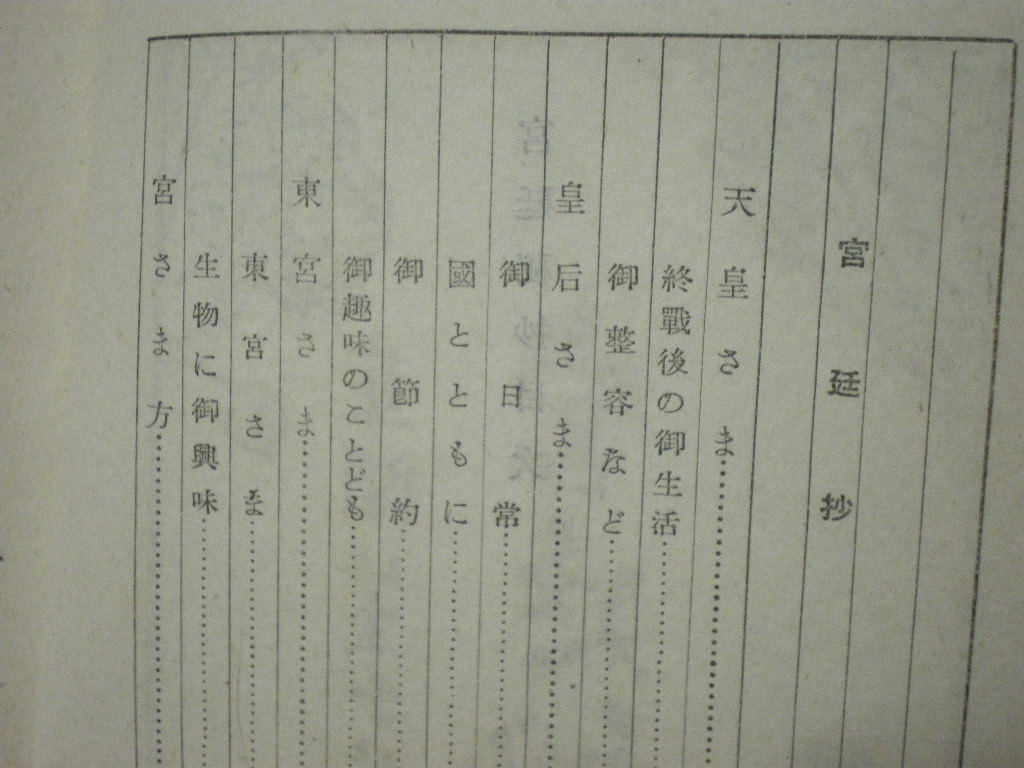 宮廷抄
天皇さま
終戰後の御生活
御整容など
皇后さま
御日常
國とともに
御節約
御趣味のことども
東宮さま
東宮さま
生物に御興味
宮さま方